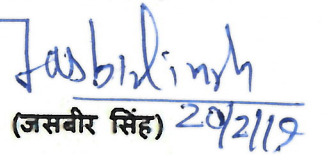 Jasbirsingh
(जसबीर सिंह) 20/2/19